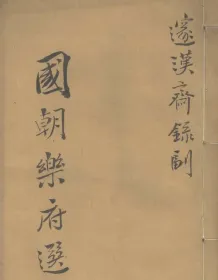 邃漢齋錄副
國朝樂府選